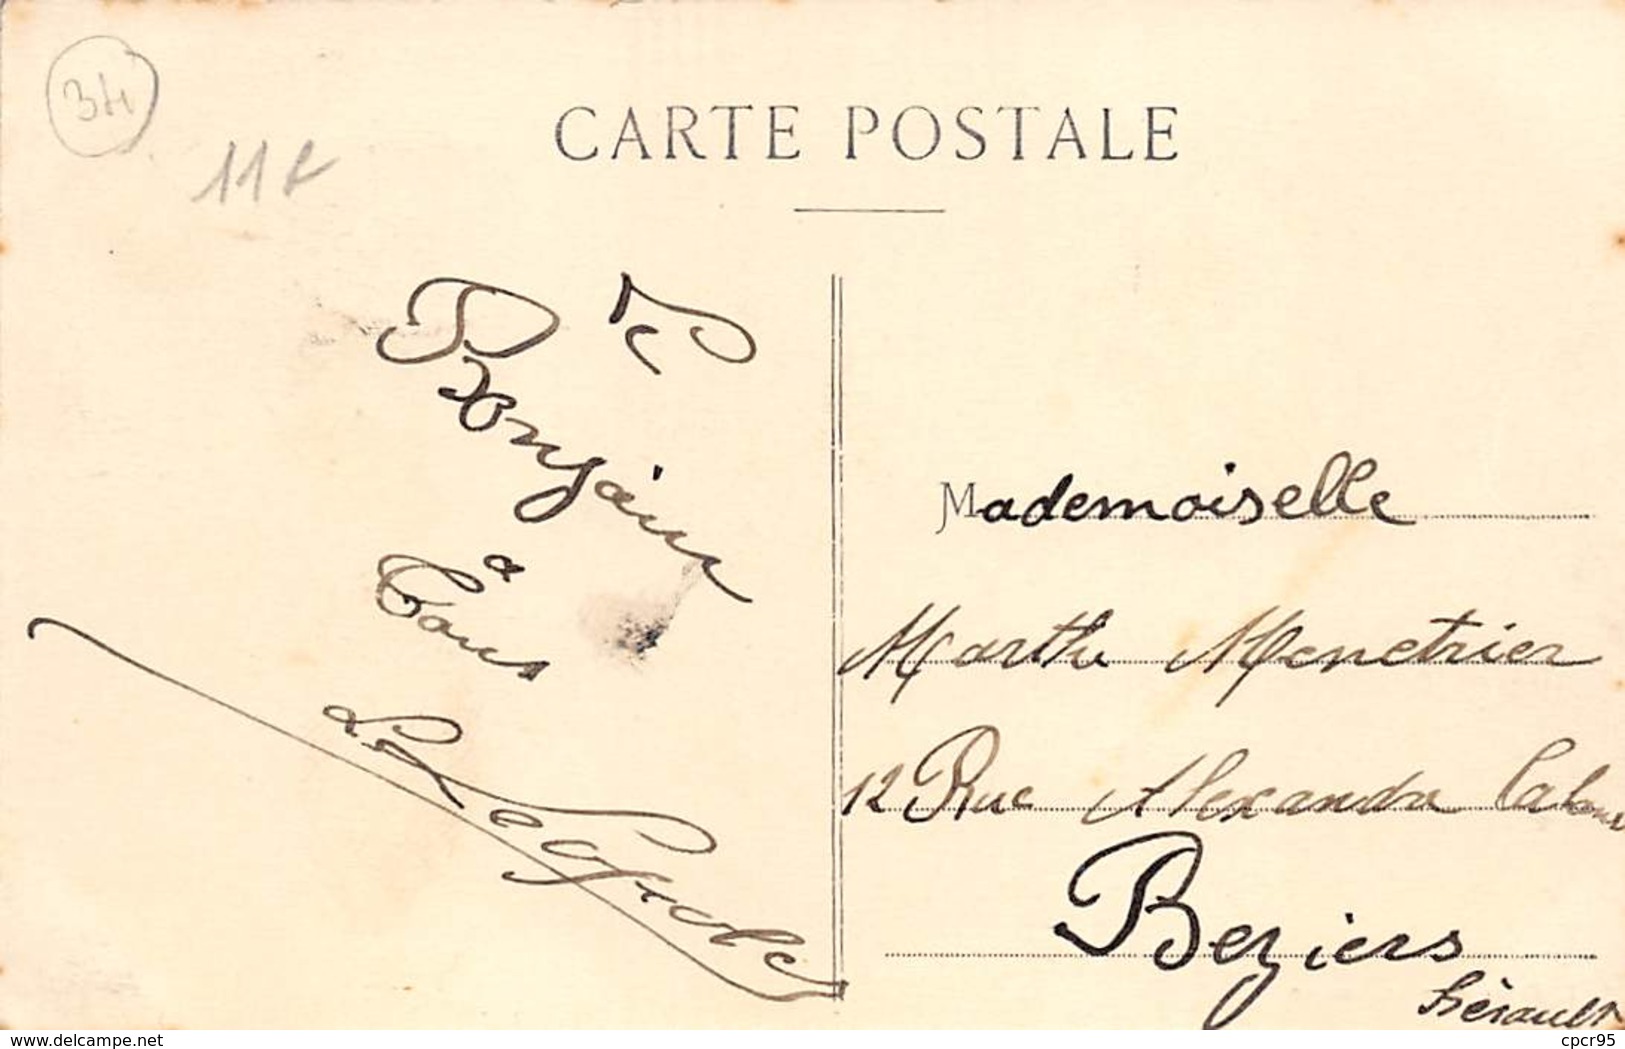 34
11f
CARTE POSTALE
Le
Bonjour
a
Tous
Mademoiselle
Marthe Menetrier
12 Rue Alexandre Cabanel
Beziers
Hérault
www.delcampe.net
cpcr95